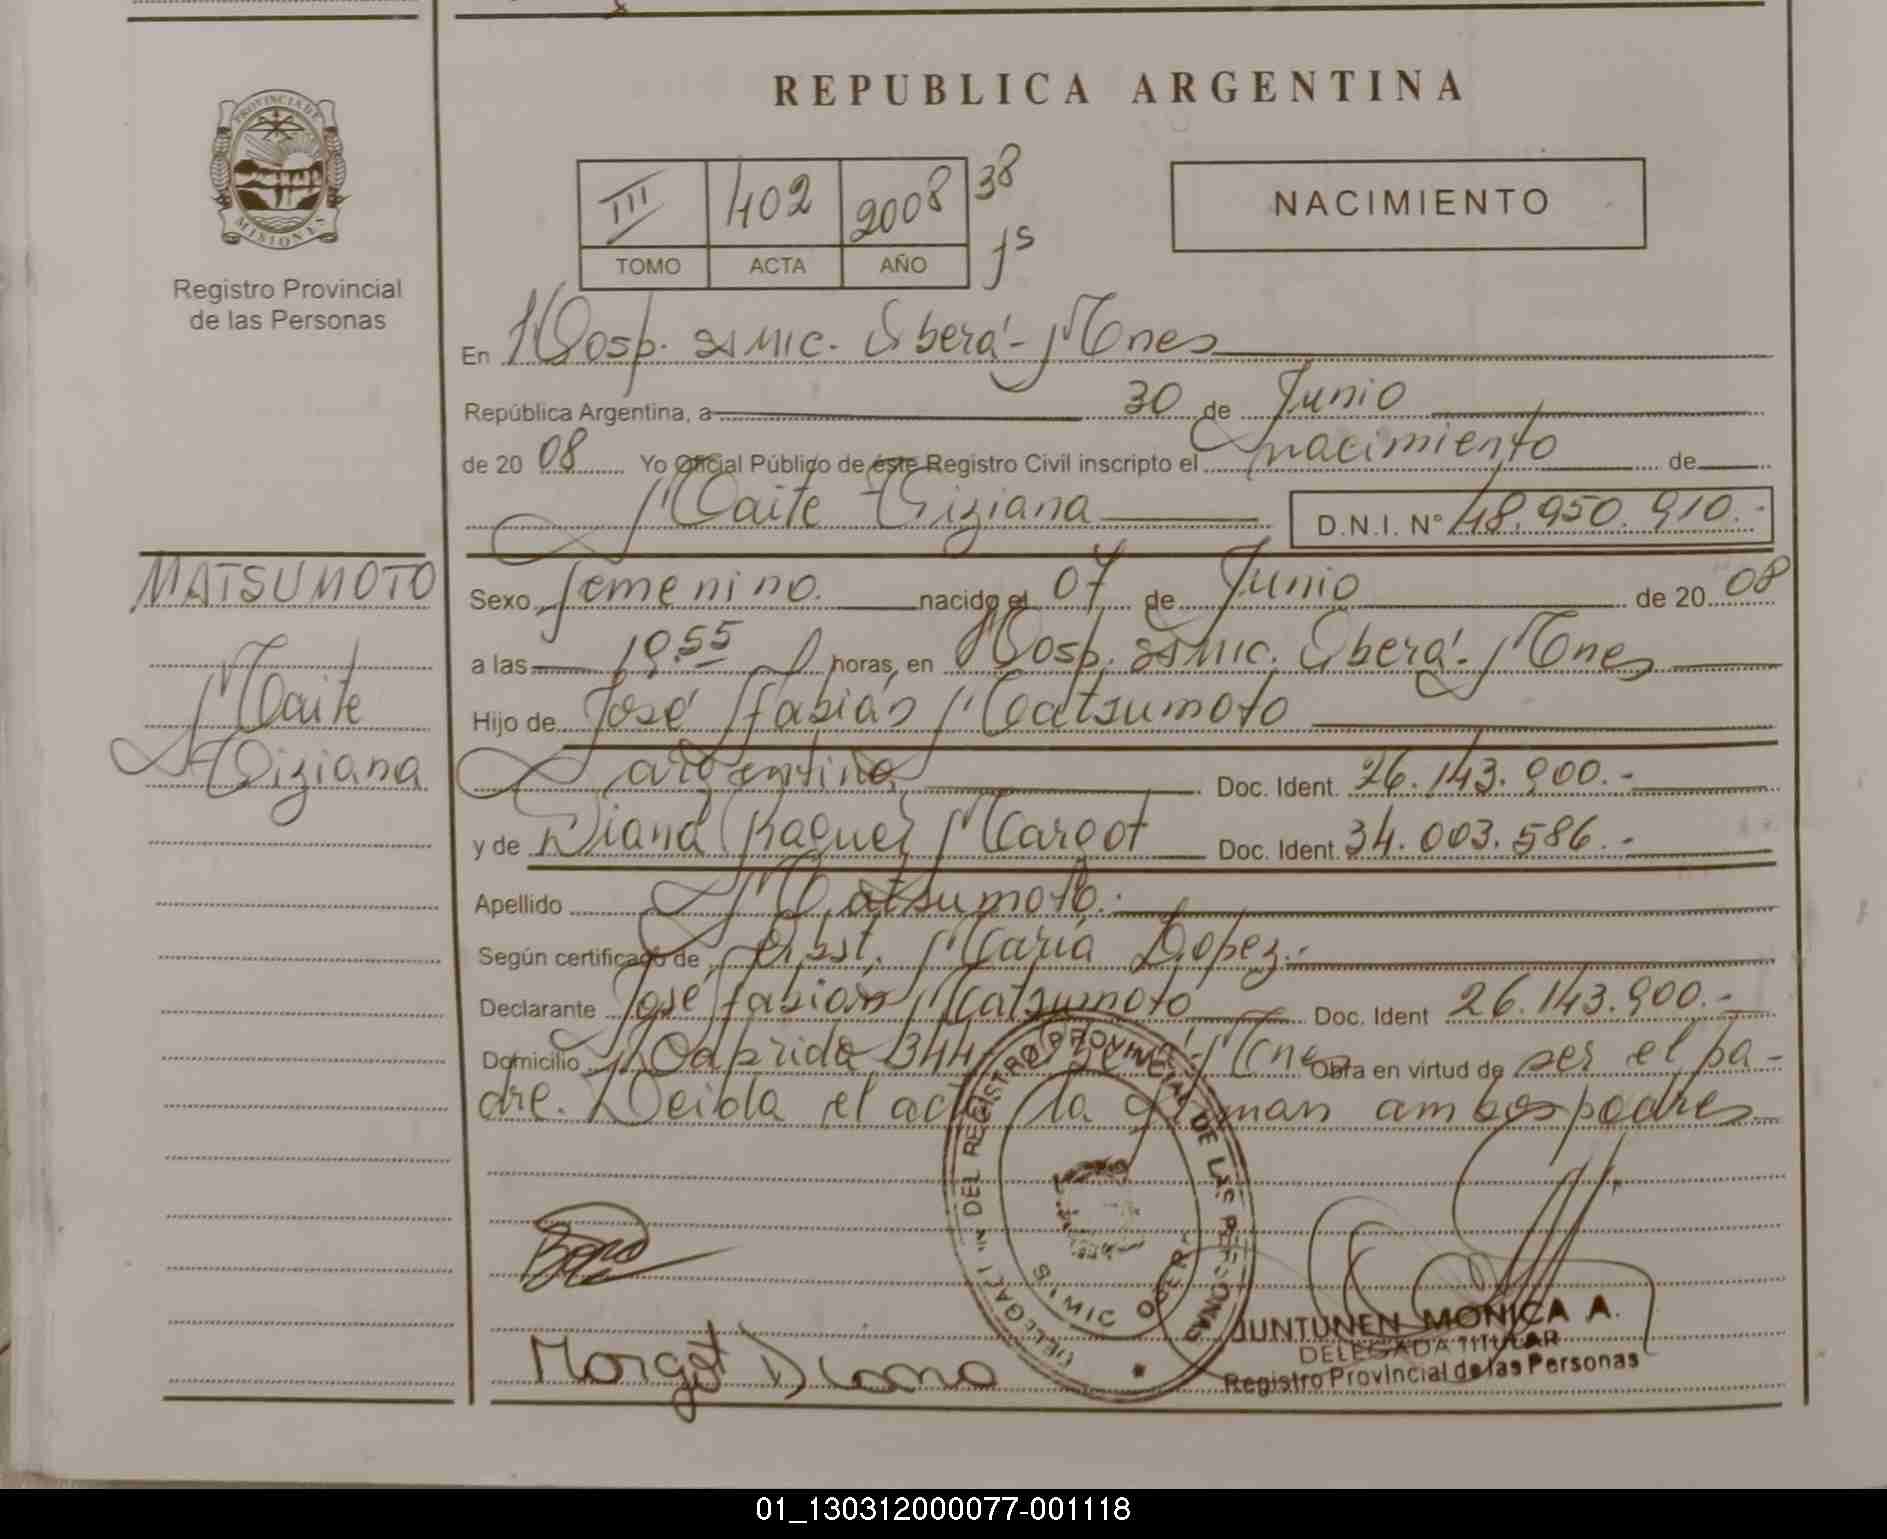 REPUBLICA ARGENTINA
PROVINCIA DE
MISIONES
Registro Provincial
de las Personas
III 402 2008 38
TOMO ACTA AÑO
NACIMIENTO
En Hosp. SAMIC. Oberá - Mnes
República Argentina, a 30 de Junio
de 2008 Yo Oficial Público de éste Registro Civil inscripto el nacimiento de
Maite Tiziana D.N.I. N° 48.950.910.-
MATSUMOTO
Maite
Tiziana
Sexo femenino. nacido el 07 de Junio de 2008
a las 19.55 horas, en Hosp. SAMIC. Oberá - Mnes
Hijo de José Fabián Matsumoto
argentino Doc. Ident. 26.143.900.-
y de Diana Raquel Margot Doc. Ident. 34.003.586.-
Apellido Matsumoto.-
Según certificado de Obst. María Lopez.-
Declarante José Fabián Matsumoto Doc. Ident 26.143.900.-
Domicilio 344 Oberá - Mnes Obra en virtud de ser el pa-
dre. Leída el acta la firman ambos padres
DEL REGISTRO PROVINCIAL DE LAS PERSONAS
SAMIC OBERA
Margot Diana
JUNTUNEN MONICA A.
DELEGADA TITULAR
Registro Provincial de las Personas
01_130312000077-001118